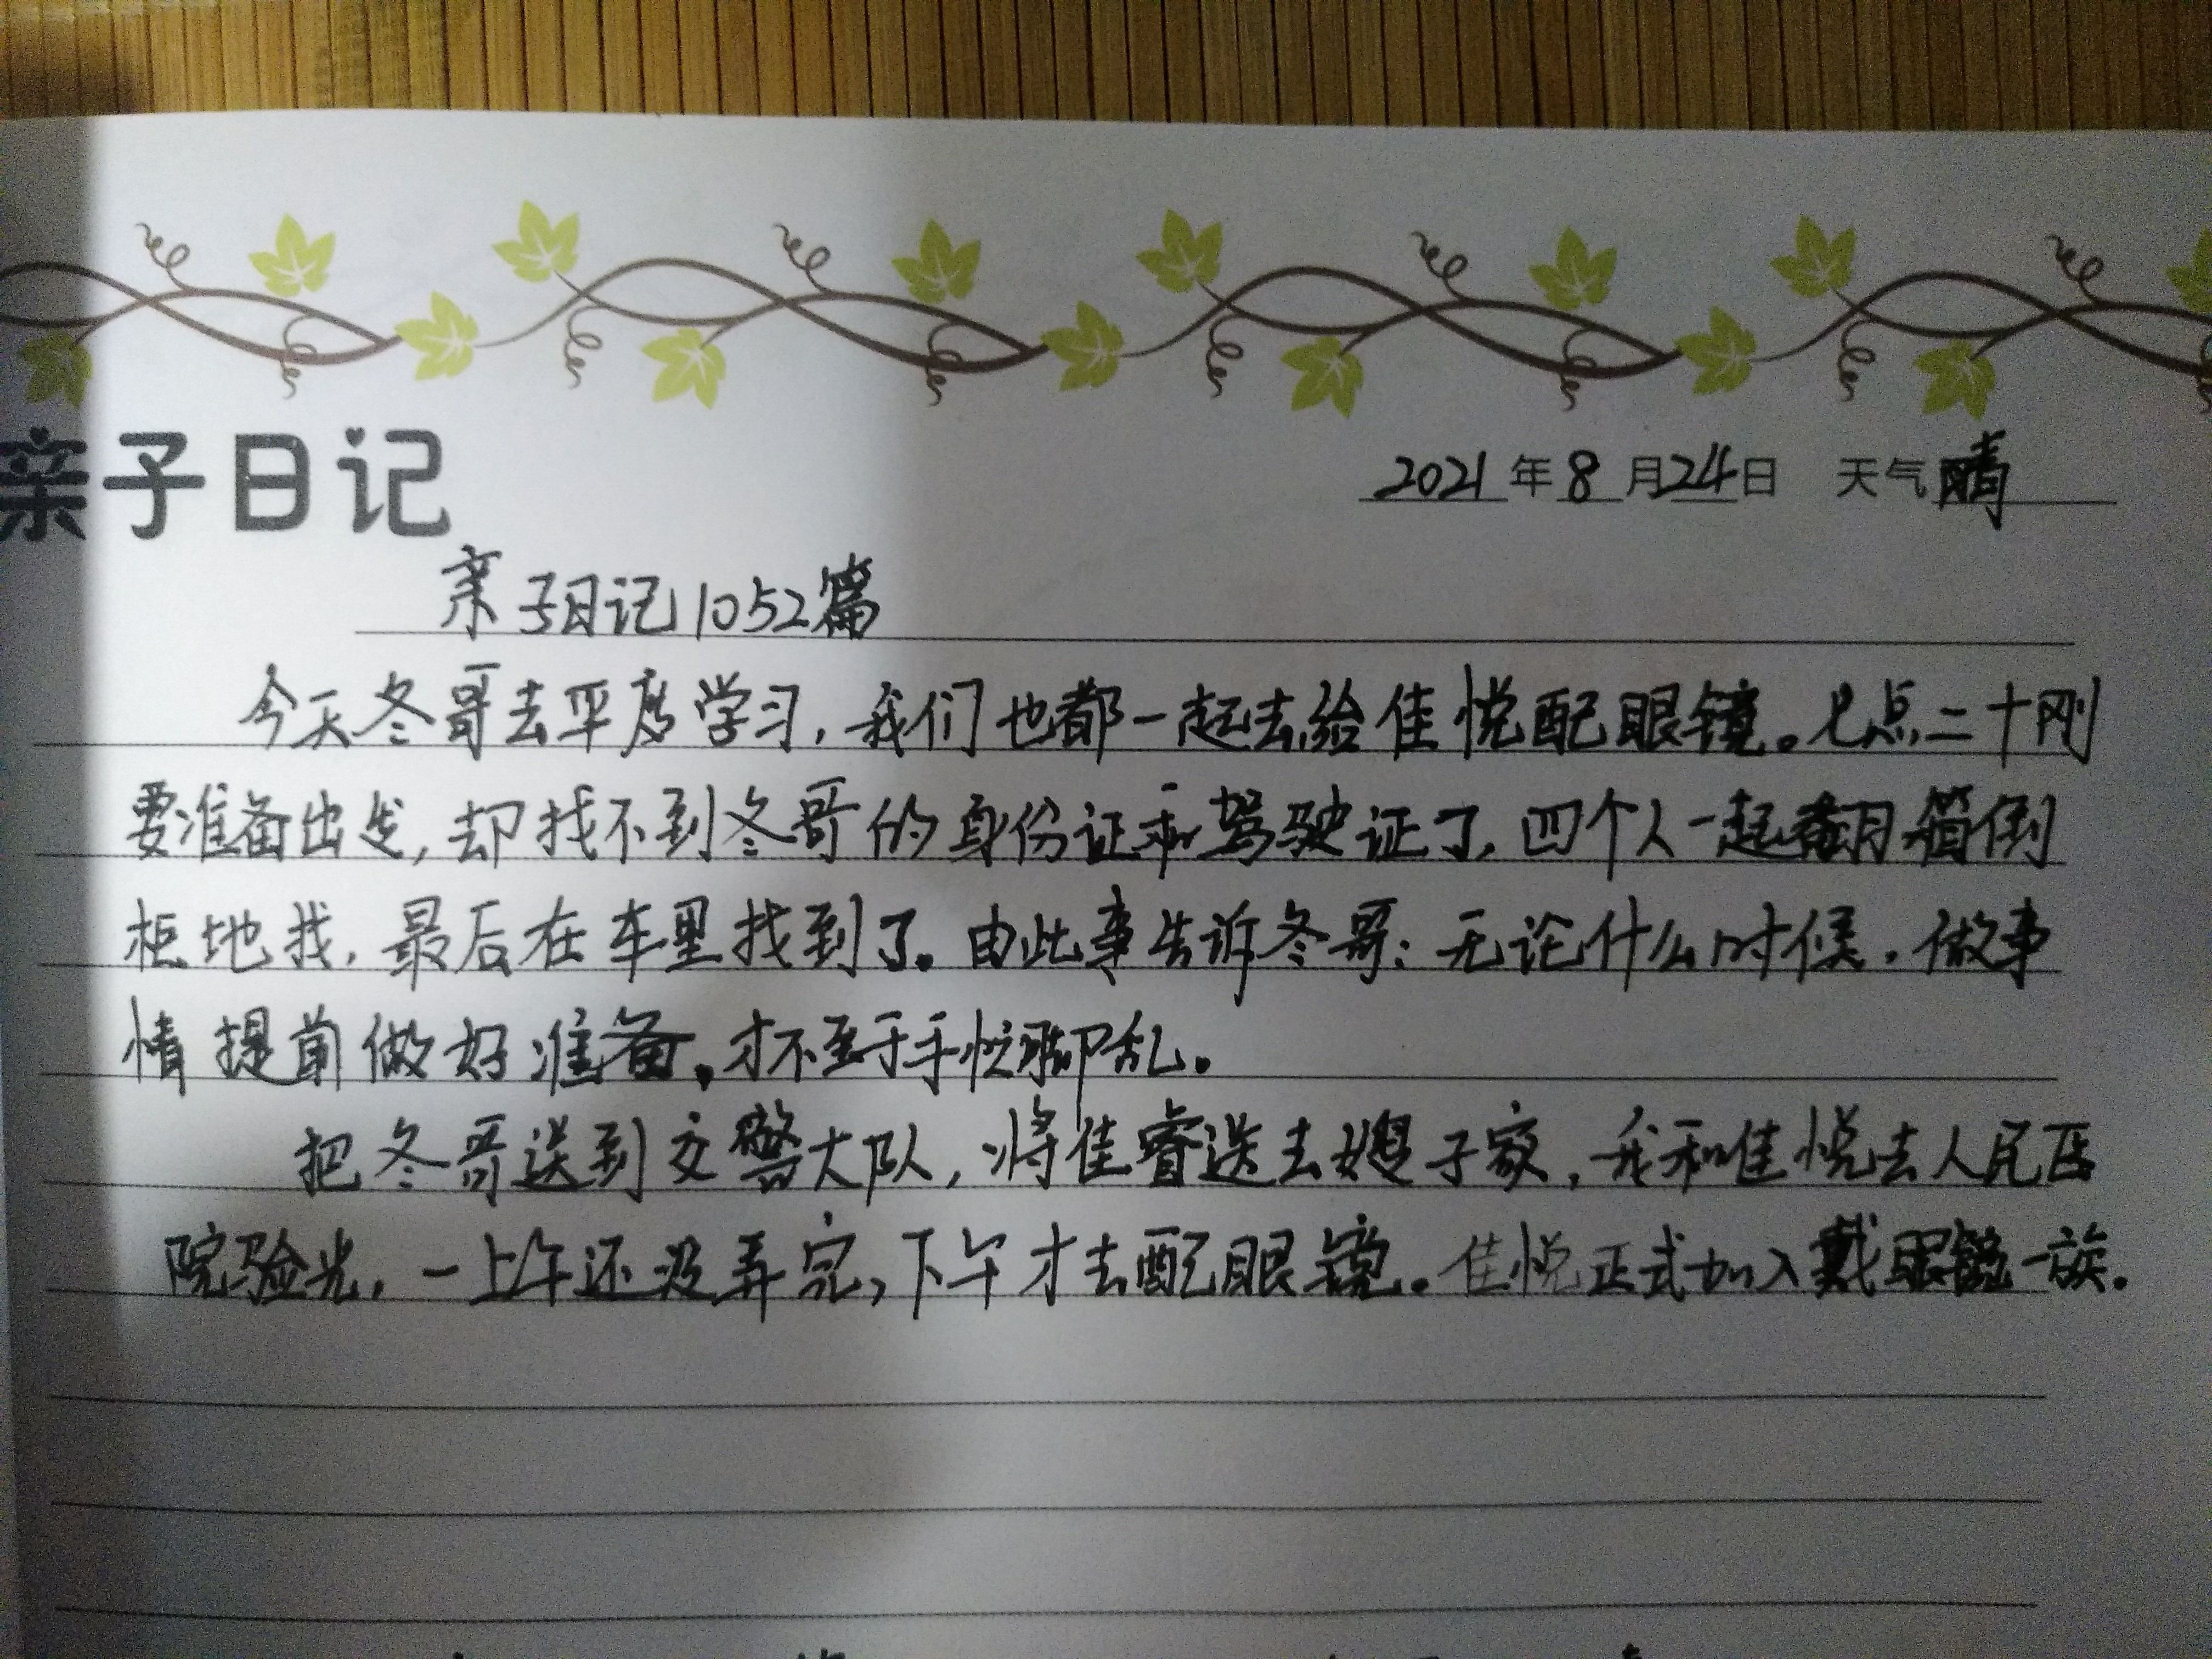 亲子日记
2021年8月24日 天气晴
亲子日记1052篇
今天冬哥去平度学习，我们也都一起去给佳悦配眼镜。七点二十刚
要准备出发，却找不到冬哥的身份证和驾驶证了，四个人一起翻箱倒
柜地找，最后在车里找到了。由此事告诉冬哥：无论什么时候，做事
情提前做好准备，才不至于手忙脚乱。
把冬哥送到交警大队，将佳睿送去嫂子家，我和佳悦去人民医
院验光，一上午还没弄完，下午才去配眼镜。佳悦正式加入戴眼镜一族。